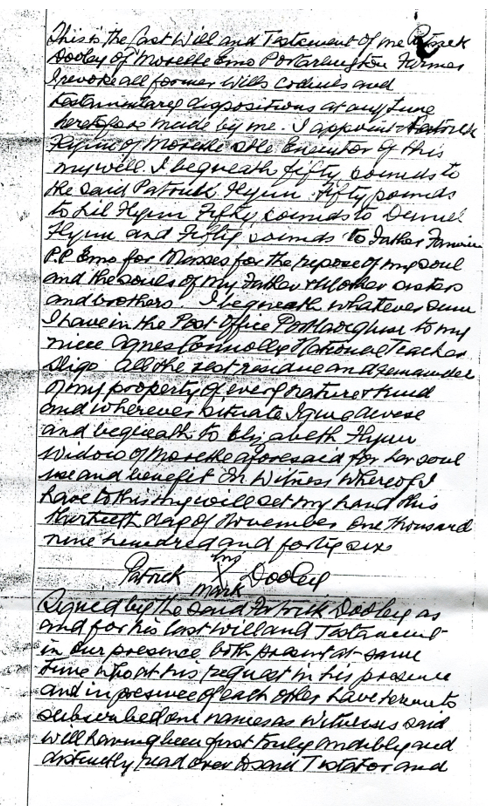 This is the Last Will and Testament of me Patrick
Dooley of Morette Emo Portarlington Farmer
I revoke all former Wills Codicils and
testamentary dispositions at any time
heretofore made by me. I appoint Patrick
Flynn of Morette sole Executor of this
my will. I bequeath fifty pounds to
the said Patrick Flynn. Fifty pounds
to Lil Flynn Fifty pounds to Daniel
Flynn and Fifty pounds to Father
P.P. Emo for Masses for the repose of my soul
and the souls of my Father & Mother sisters
and brothers. I bequeath whatever sum
I have in the Post Office Portlaoighise to my
niece Agnes Connolly National Teacher
Sligo. All the rest residue and remainder
of my property of every nature & kind
and wherever situate I give devise
and bequeath to Elizabeth Flynn
Widow of Morette aforesaid for her soul
use and benefit In Witness whereof I
have to this my will set my hand this
thirtieth day of November one thousand
nine hundred and forty six
Patrick his X mark Dooley
Signed by the said Patrick Dooley as
and for his last will and Testament
in our presence both present at same
time who at his request in his presence
and in presence of each other have hereunto
subscribed our names as witnesses said
will having been first truly audibly and
distinctly read over to said Testator and